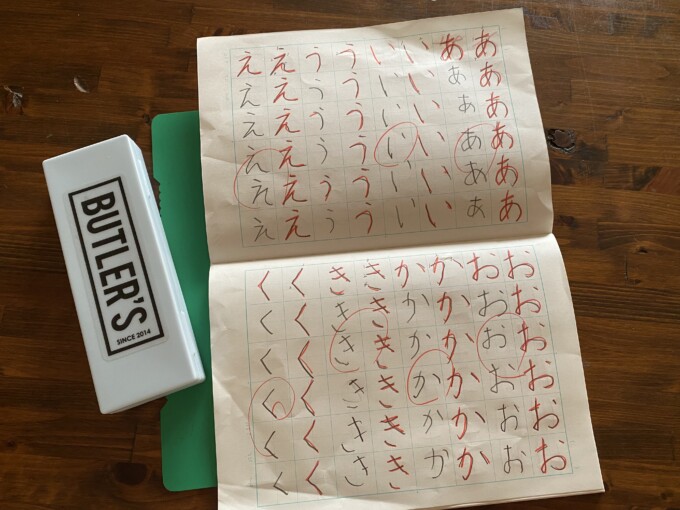 ああああああ
ああああああ
いいいいいい
いいいいいい
うううううう
うううううう
ええええええ
ええええええ
おおおおおお
おおおおおお
かかかかかか
かかかかかか
きききききき
きききききき
くくくくくく
くくくくくく
BUTLER'S
SINCE 2014